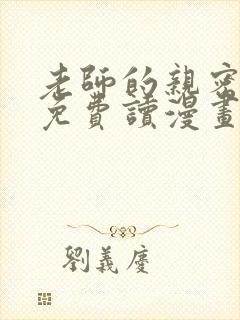 老師的親密
免費讀漫畫
劉義慶